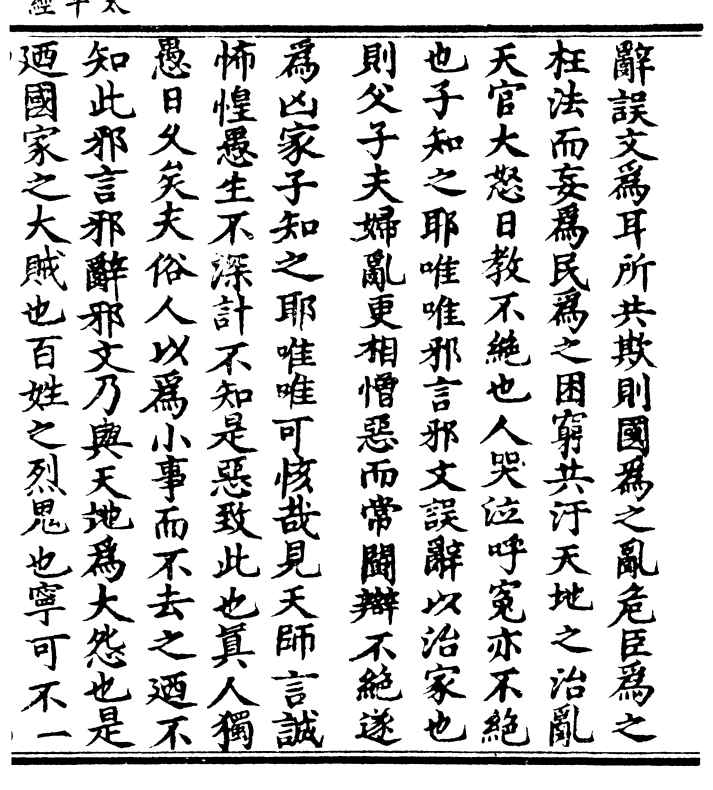 太平經
辭誤文爲耳所共欺則國爲之亂危臣爲之
枉法而妄爲民爲之困窮共汙天地之治亂
天官大怒日教不絶也人哭泣呼冤亦不絶
也子知之耶唯唯邪言邪文誤辭以治家也
則父子夫婦亂更相憎惡而常鬪辯不絶遂
爲凶家子知之耶唯唯可惔哉見天師言誠
怖惶愚生不深計不知是惡致此也真人獨
愚日久矣夫俗人以爲小事而不去之迺不
知此邪言邪辭邪文乃與天地爲大怨也是
迺國家之大賊也百姓之烈鬼也寧可不一